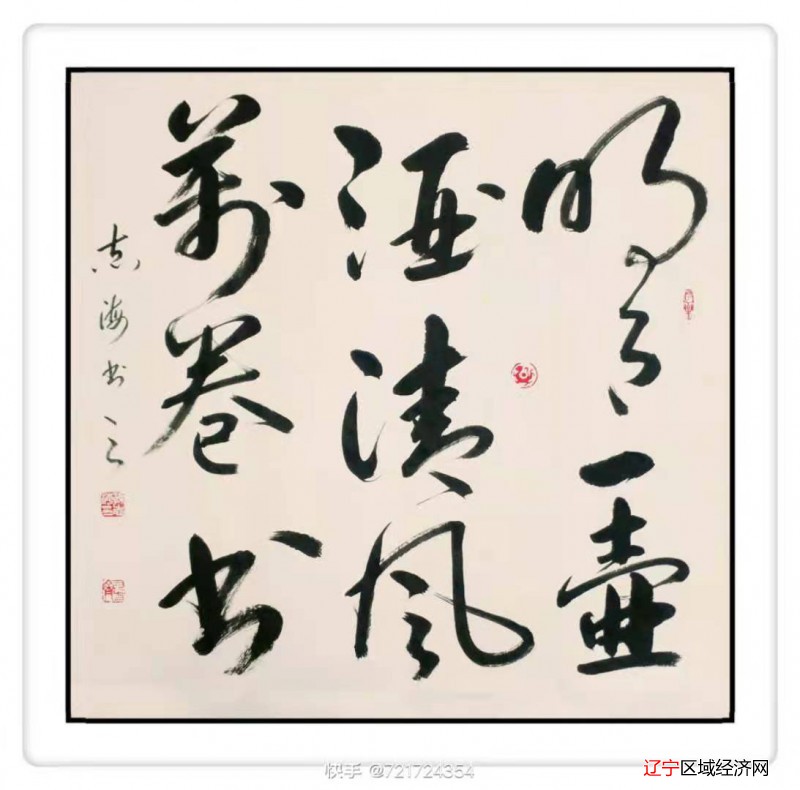 明月一壺
酒清風
萬卷書
志海书之
快手 @721724354
辽宁区域经济网